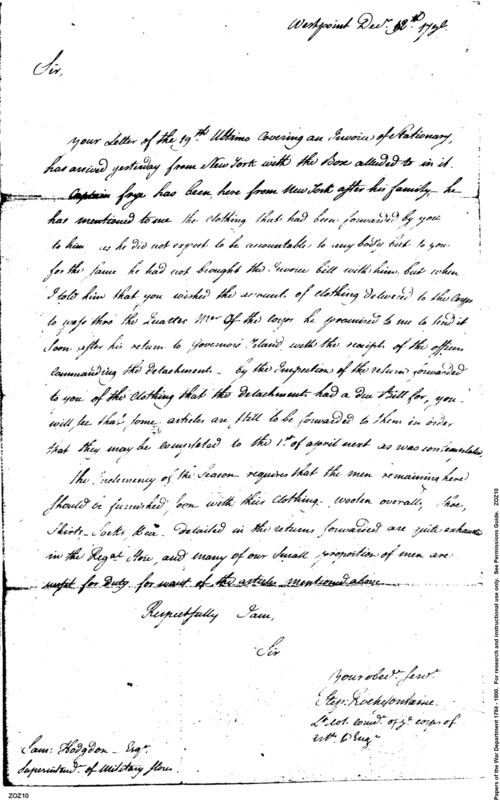 Westpoint Decr. 12th 1796.
Sir,
Your Letter of the 19th Ultimo Covering an Invoice of Stationary,
has arrived yesterday from New York with the Box alluded to in it.
Captain frye has been here from New York after his family, he
has mentioned to me the clothing that had been forwarded by you
to him, as he did not expect to be accountable to any body but to you
for the same he had not brought the Invoice bill with him, but when
I told him that you wished the account of clothing delivered to the Corps
to pass thro' the Quarter Mer Of the Corps he promised to me to send it
Soon after his return to Governors Island with the receipts of the officers
Commanding the Detachment - by the Inspection of the return forwarded
to you of the Clothing that the detachments had a due Bill for, you
will see that some articles are still to be forwarded to them in order
that they may be completed to the 1st of april next as was contemplated.
The inclemency of the Season requires that the men remaining here
Should be furnished soon with their Clothing - woolen overalls, Shoe,
Shirts - Socks &ca - detailed in the returns forwarded are quite exhausted
in the Regal Store, and many of our Small proportion of men are
unfit for Duty for want of the article mentioned above
Respectfully I am,
Sir
Your obedt. Servt.
Step: Rochefontaine
Lt. col. comdt. of ye corps of
Art. & Engrs
Sam: Hodgdon - Esqr.
Superintendt. of Military Stores
ZOZ10
Papers of the War Department 1784 - 1800. For research and instructional use only. See Permissions Guide. ZOZ10